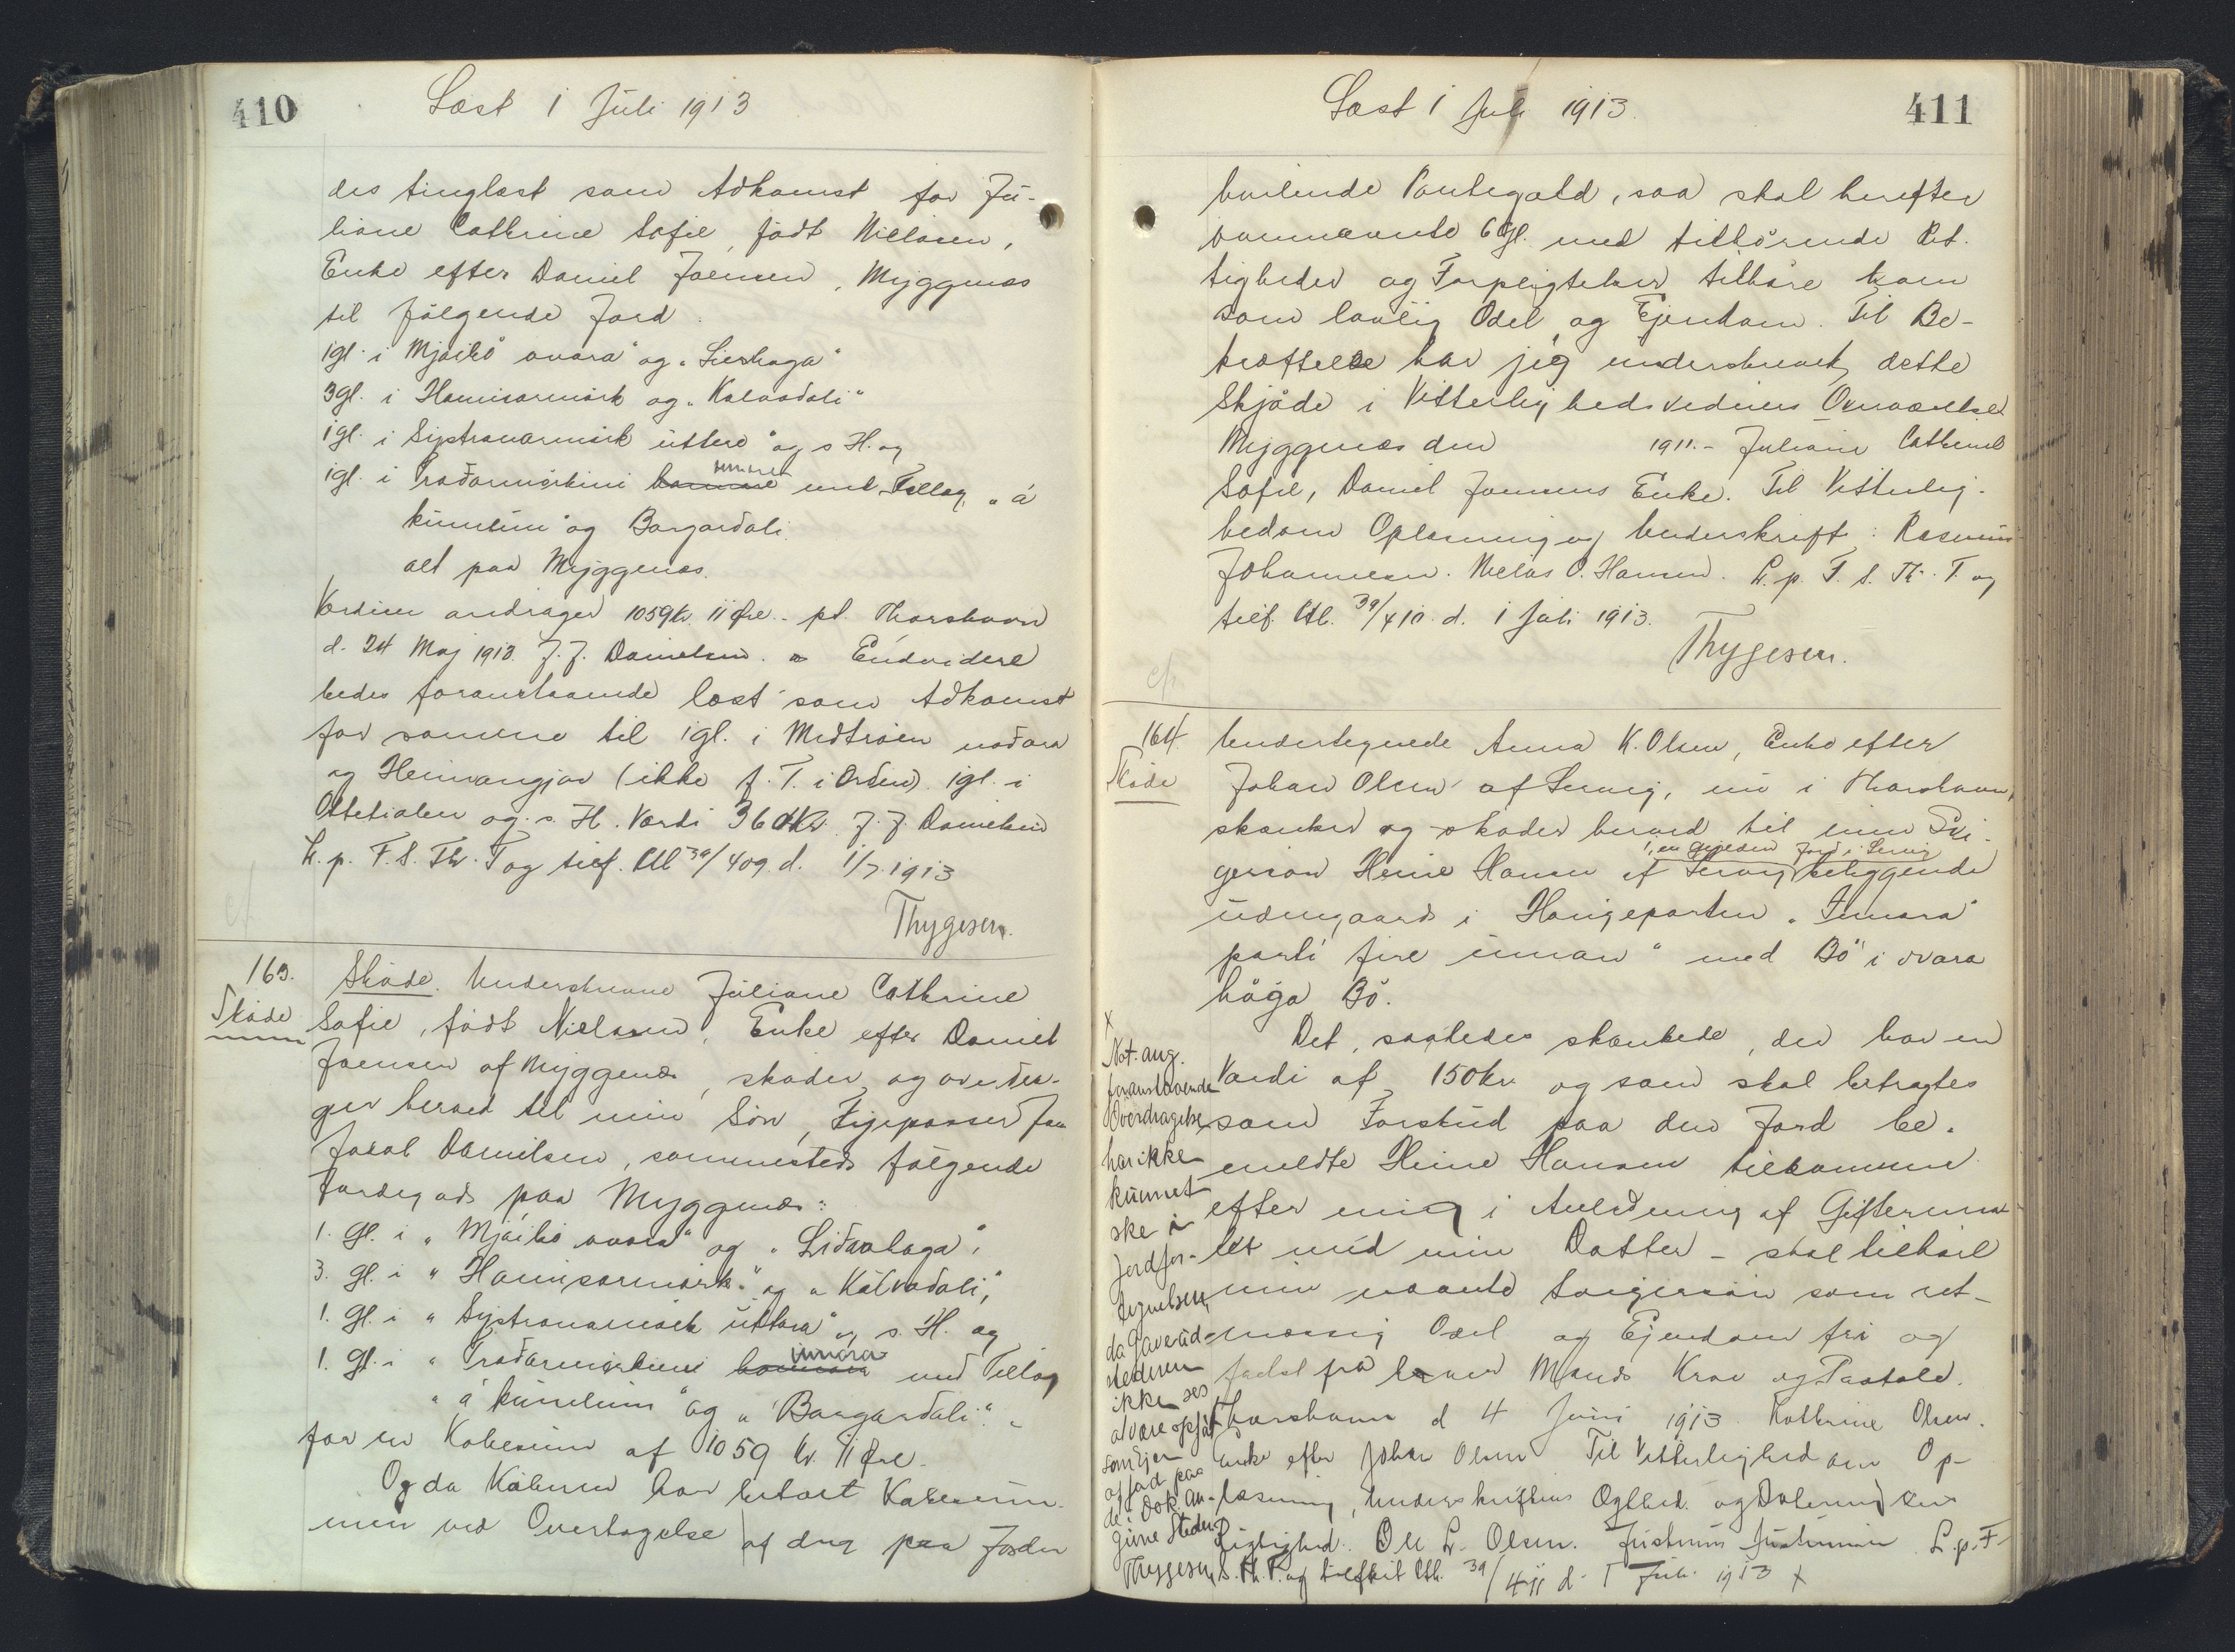 410
Læst 1 Juli 1913
des tinglæst som Adkomst for Ju-
liane Cathrine Sofie, født Nielsen,
Enke efter Daniel Joensen, Myggenæs
til følgende Jord.
1gl. i Mjáikó ovara" og "Lierhaga"
3gl. i Hanisarmørk og "Kalvadali"
1gl. i Systranarmørk úttara" og s. H. og
1gl. i Traðarmørkini innara med Tillæg "á
kúnlúni" og Bargardali.
alt paa Myggenæs.
Værdien andrager 1059Kr. 11 Øre - pt. Thorshavn
d. 24 Maj 1913. J. J. Danielsen. Endvidere
bedes foranstaaende læst som Adkomst
for samme til 1gl. i Miðtrøen noðara
og Heimangjar (ikke f. T. i Orden). 1gl. i
og s. H. Værdi 360Kr. J. J. Danielsen
L. p. F. S. Th. T og tilf. Ctb 39/409 d. 1/7 1913
Thygesen.
163.
Skøde
Skøde. Underskrevne Juliane Cathrine
Sofie, født Nielsen, Enke efter Daniel
Joensen af Myggenæs, skøder og overdra-
ger herved til min Søn, Fyrpasser Jan
Jacob Danielsen, sammesteds følgende
Jordegods paa Myggenæs:
1. Gl. i "Mjáikó ovara" og "Liðarhaga",
3. Gl. i "Hanisarmørk" og "Kálvadali",
1. Gl. i "Systranamørk úttara" og s. H. og
1. Gl. i "Traðarmørkini innara med Tillæg
"á kúnlúni" og "Bargardali". -
for en Købesum af 1059 Kr. 11 Øre.
Og da Køberen har betalt Købesum-
men ved Overtagelse af den paa Jorden
411
Læst 1 Juli 1913.
hvilende Pantegæld, saa skal herefter
ovennævnte 6 Gl. med tilhørende Ret-
tigheder og Forpligtelser tilhøre ham
som lovlig Odel og Ejendom. Til Be-
kræftelse har jeg underskrevet dette
Skjøde i Vitterlighedsvidners Overværelse
Myggenæs den 1911. - Juliane Cathrine
Sofie, Daniel Joensens Enke. Til Vitterlig-
hed om Oplæsning og Underskrift: Rasmus
Johannesen. Niclas O. Hansen. L. p. F. S. Th. T. og
tilf. Ctb. 39/410. d. 1 Juli 1913.
Thygesen.
164.
Skøde
Undertegnede Anna K. Olsen, Enke efter
Johan Olsen af Servig, nu i Thorshavn,
skænker og skøder herved til min Svi-
1, en Gylden Jord i Servig
gersøn Heine Hansen af Servig beliggende
udengaards i Haugeparten "Innara
parti fire innan" med Bø i ovara
høga Bø.
Det saaledes skænkede, der har en
Værdi af 150 kr og som skal betragtes
som Forskud paa den Jord be-
meldte Heine Hansen tilkommer
efter mig i Anledning af Giftermaa-
let med min Datter - skal tilhøre
min nævnte Svigersøn som ret-
mæssig Odel og Ejendom fri og
frelst fra hver Mands Krav og Paatale.
Thorshavn d 4 Juni 1913. Kathrine Olsen.
Enke efter Johan Olsen Til Vitterlighed om Op-
læsning, Underskriftens Ægthed og Dateringens
Rigtighed. Ole L. Olsen. Justinus Justinussen L. p. F.
S. Th. T. og tilført Ctb. 39/411 d. 1 Juli 1913 x
x
Not. ang.
foranstaaende
Overdragelse
har ikke
kunnet
ske i
Jordfor-
tegnelsen,
da Gaveud-
stederen
ikke ses
at være opført
som Ejer
af Jord paa
de i Dok. an-
givne Steder
Thygesen